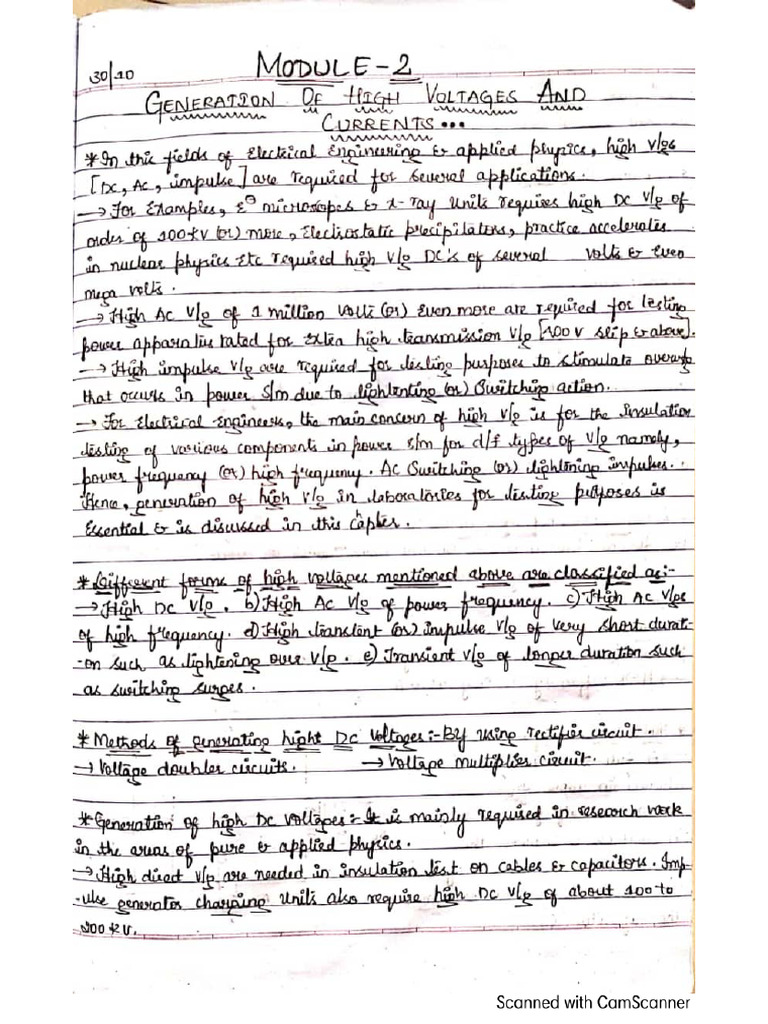 30/10
MODULE-2
GENERATION OF HIGH VOLTAGES AND
CURRENTS...
* In this fields of Electrical Engineering & applied physics, high v/gs
[DC, AC, impulse] are required for several applications.
→ For Examples, e⊖ microscopes & x-ray Units requires high DC v/g of
order of 100kv (or) more, Electrostatic precipitators, practice accelerates
in nuclear physics Etc required high v/g DC's of several volts & Even
mega volts.
→ High AC v/g of 1 million volts (or) Even more are required for testing
power apparatus rated for Extra high transmission v/g [400v slip & above].
→ High impulse v/g are required for testing purposes to stimulate overv/g
that occurs in power s/m due to lightenting (or) Switching action.
→ For Electrical Engineers, the main concern of high v/g is for the insulation
testing of various components in power s/m for d/f types of v/g namely,
power frequency (or) high frequency. AC Switching (or) lightening impulses.
Hence, generation of high v/g in laboratories for testing purposes is
Essential & is discussed in this capter.
* Different forms of high voltages mentioned above are classified as:-
→ High DC v/g. b) High AC v/g of power frequency. c) High AC v/gs
of high frequency. d) High transtent (or) impulse v/g of very short durati-
-on such as lightening over v/g. e) Transient v/g of longer duration such
as switching surges.
* Methods of generating hight DC voltages:- By using rectifier circuit.
→ Voltage doubler circuits. → Voltage multiplier circuit.
* Generation of high DC voltages:- It is mainly required in research work
in the areas of pure & applied physics.
→ High direct v/g are needed in insulation test on cables & capacitors. Imp-
-ulse generator charging Units also require high DC v/g of about 100 to
200 kv.
Scanned with CamScanner